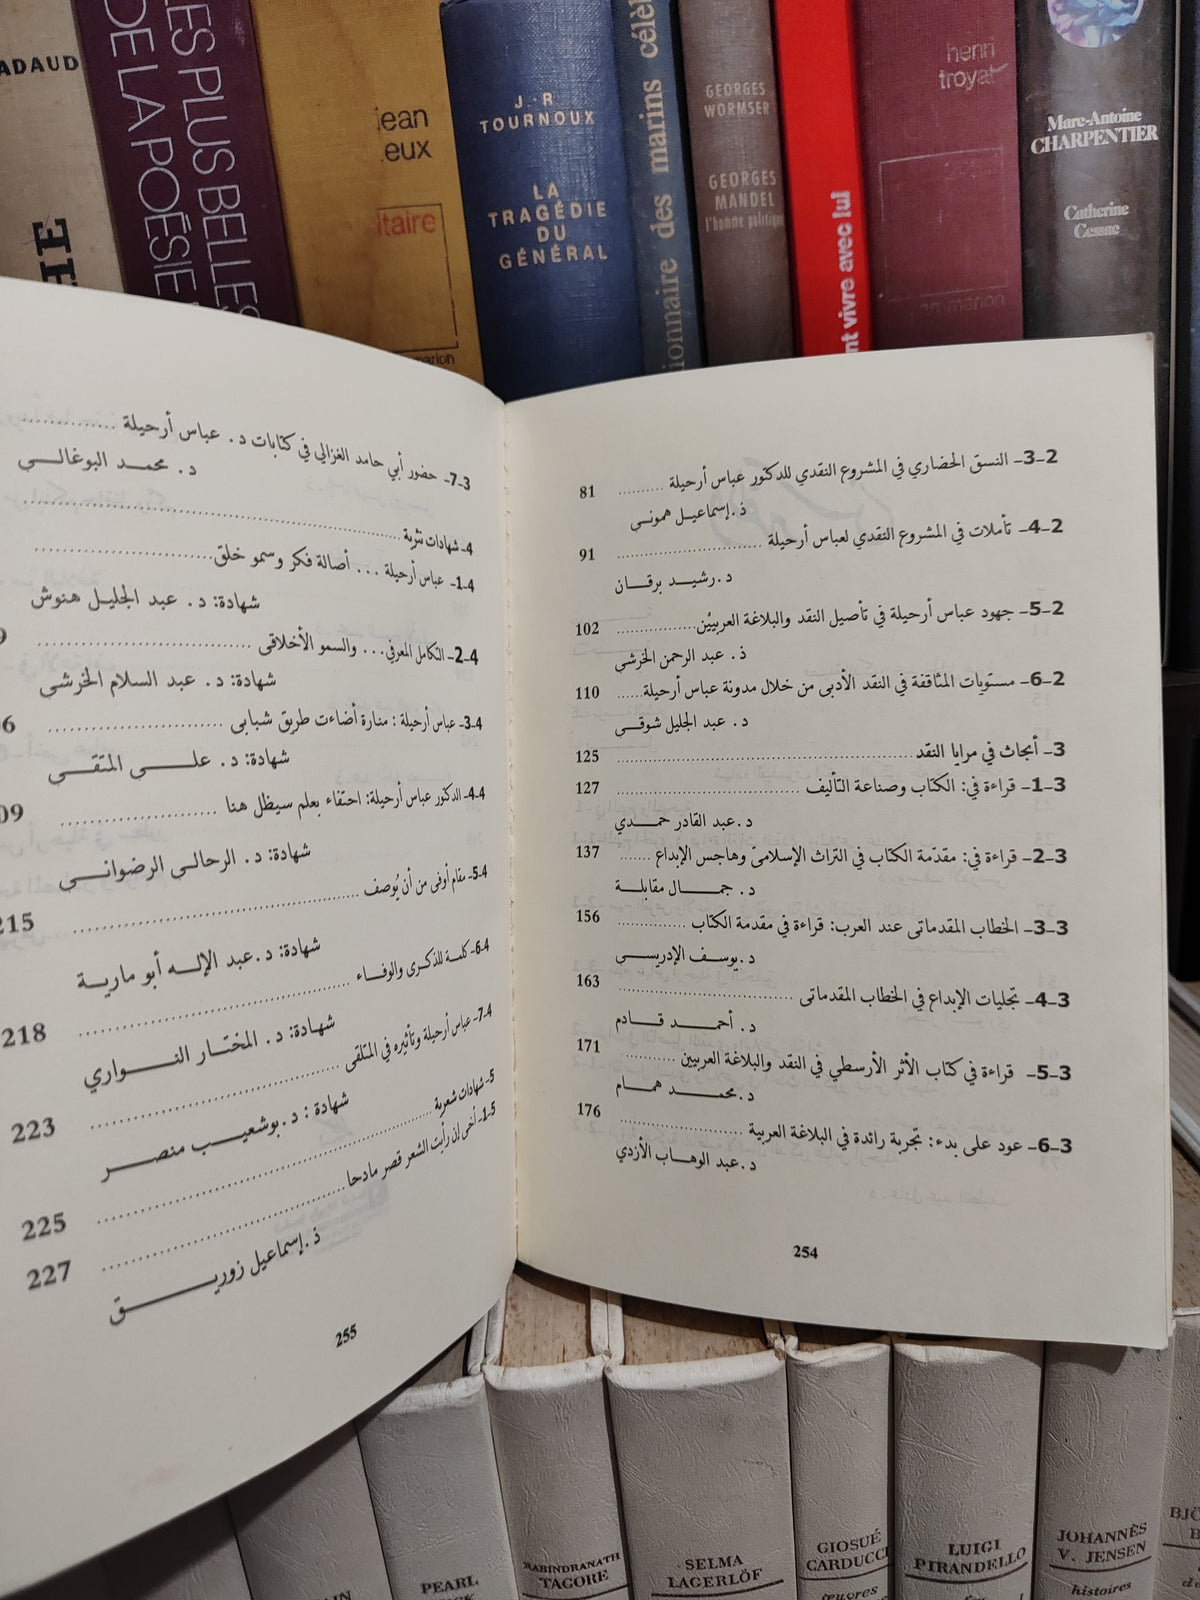 ADAUD
HE
LES PLUS BELLES
DE LA POÉSIE
jean
eux
ltaire
J.-R
TOURNOUX
LA
TRAGÉDIE
DU
GÉNÉRAL
ionnaire des marins célè
GEORGES
WORMSER
GEORGES
MANDEL
l'homme politique
nt vivre avec lui
henri
troyat
Marc-Antoine
CHARPENTIER
Catherine
Cessac
2-3- النسق الحضاري في المشروع النقدي للدكتور عباس أرحيلة .......... 81
ذ.إسماعيل هموني
2-4- تأملات في المشروع النقدي لعباس أرحيلة .......... 91
د.رشيد برقان
2-5- جهود عباس أرحيلة في تأصيل النقد والبلاغة العربيّين .......... 102
ذ. عبد الرحمن الخرشي
2-6- مستويات المثاقفة في النقد الأدبي من خلال مدونة عباس أرحيلة ...... 110
د. عبد الجليل شوقي
3- أبحاث في مرايا النقد .......... 125
3-1- قراءة في: الكتاب وصناعة التأليف .......... 127
د.عبد القادر حمدي
3-2- قراءة في: مقدّمة الكتاب في التراث الإسلاميّ وهاجس الإبداع ....... 137
د. جمال مقابلة
3-3- الخطاب المقدماتي عند العرب: قراءة في مقدمة الكتاب .......... 156
د.يوسف الإدريسي
3-4- تجليات الإبداع في الخطاب المقدماتي .......... 163
د. أحمد قادم
3-5- قراءة في كتاب الأثر الأرسطي في النقد والبلاغة العربيين .......... 171
د.محمد همام
3-6- عود على بدء: تجربة رائدة في البلاغة العربية .......... 176
د.عبد الوهاب الأزدي
254
3-7- حضور أبي حامد الغزالي في كتابات د. عباس أرحيلة ..........
د. محمد البوغالي
4- شهادات نثرية ..........
4-1- عباس أرحيلة ... أصالة فكر وسمو خلق ..........
شهادة: د. عبد الجليل هنوش
4-2- التكامل المعرفي... والسمو الأخلاقي .......... 9
شهادة: د. عبد السلام الخرشي
4-3- عباس أرحيلة : منارة أضاءت طريق شبابي .......... 6
شهادة: د. علي المتقي
4-4- الدكتور عباس أرحيلة: احتفاء بعلم سيظل هنا .......... 09
شهادة: د. الرحالي الرضواني
4-5- مقام أوفى من أن يُوصف .......... 215
شهادة: د.عبد الإله أبو مارية
4-6- كلمة للذكرى والوفاء .......... 218
شهادة: د. المختار النواري
4-7- عباس أرحيلة وتأثيره في المتلقي .......... 223
شهادة : د.بوشعيب منصر
5- شهادات شعرية .......... 225
5-1- أخي إن رأيت الشعر قصر مادحا .......... 227
ذ.إسماعيل زوريق
255
PEARL
RABINDRANATH
TAGORE
SELMA
LAGERLÖF
GIOSUÉ
CARDUCCI
œuvres
LUIGI
PIRANDELLO
JOHANNÈS
V. JENSEN
histoires
BJÖ